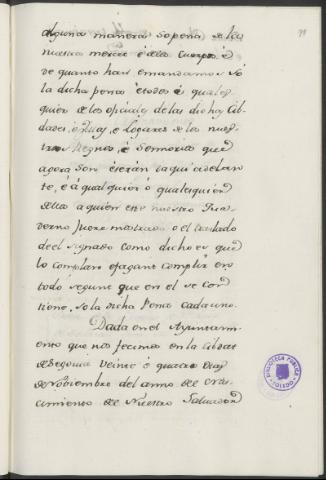 alguna manera so pena de la
nuestra merce é de los cuerpos é
de quanto han é mandamos só
la dicha pena é todos é quales
quier de los oficiales de las dichas Cib-
dades, é Villas, é Logares de los nues-
tros Regnos, é Sennorios que
agora son é serán da qui adelan-
te, é á qualquier ó qualesquier
dellos a quien este nuestro Qua-
derno fuere mostrado o el traslado
de el signado como dicho es que
lo complan é fagan complir en
todo segunt que en el se con-
tiene, so la dicha pena cada uno.
Dada en el Ayuntami-
ento que nos fecimos en la Cibdat
de Segovia veinte é quatro dias
de Noviembre del anno de nas-
cimiento de Nuestro Salvador
BIBLIOTECA PUBLICA